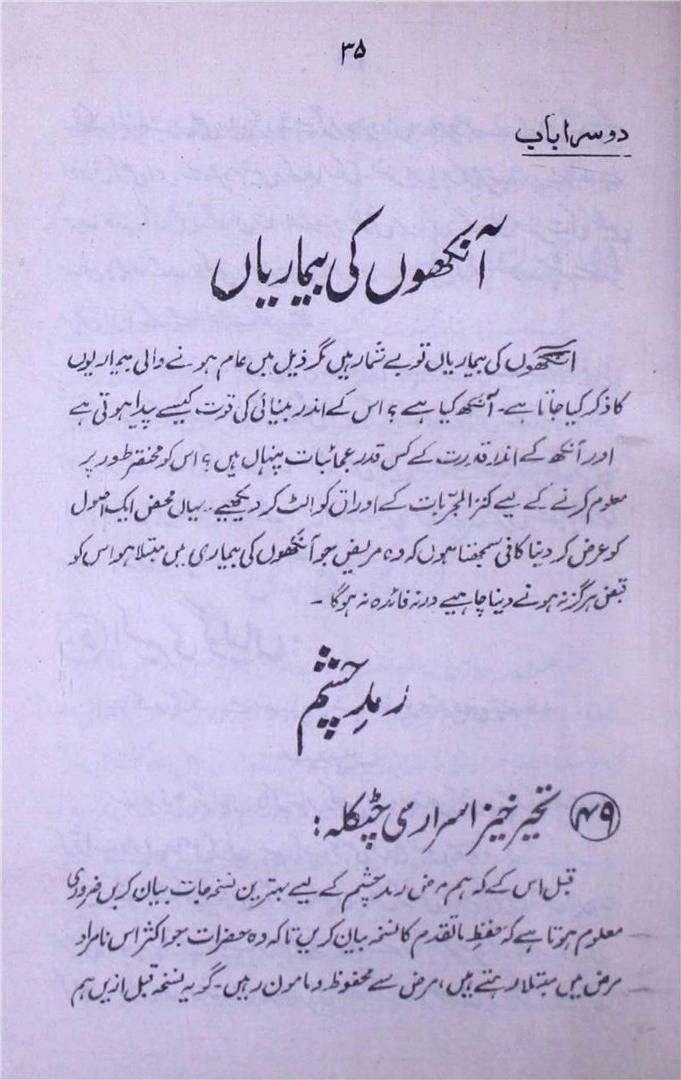 ۳۵
دوسرا باب
آنکھوں کی بیماریاں
آنکھوں کی بیماریاں تو بے شمار ہیں مگر ذیل میں عام ہونے والی بیماریوں
کا ذکر کیا جاتا ہے۔ آنکھ کیا ہے؟ اس کے اندر بینائی کی قوت کیسے پیدا ہوتی ہے
اور آنکھ کے اندر قدرت کے کس قدر عجائبات پنہاں ہیں؟ اس کو مختصر طور پر
معلوم کرنے کے لیے کنز المجربات کے اوراق کو الٹ کر دیکھیے۔ یہاں محض ایک اصول
کو عرض کر دینا کافی سمجھتا ہوں کہ وہ مریض جو آنکھوں کی بیماری میں مبتلا ہو اس کو
قبض ہرگز نہ ہونے دینا چاہیے ورنہ فائدہ نہ ہوگا۔
رمدِ چشم
۴۹ تحیر خیز اسراری چٹکلہ:
قبل اس کے کہ ہم مرض رمد چشم کے لیے بہترین نسخہ جات بیان کریں ضروری
معلوم ہوتا ہے کہ حفظِ ماتقدم کا نسخہ بیان کریں تاکہ وہ حضرات جو اکثر اس نامراد
مرض میں مبتلا رہتے ہیں، مرض سے محفوظ و مامون رہیں۔ گو یہ نسخہ قبل ازیں ہم